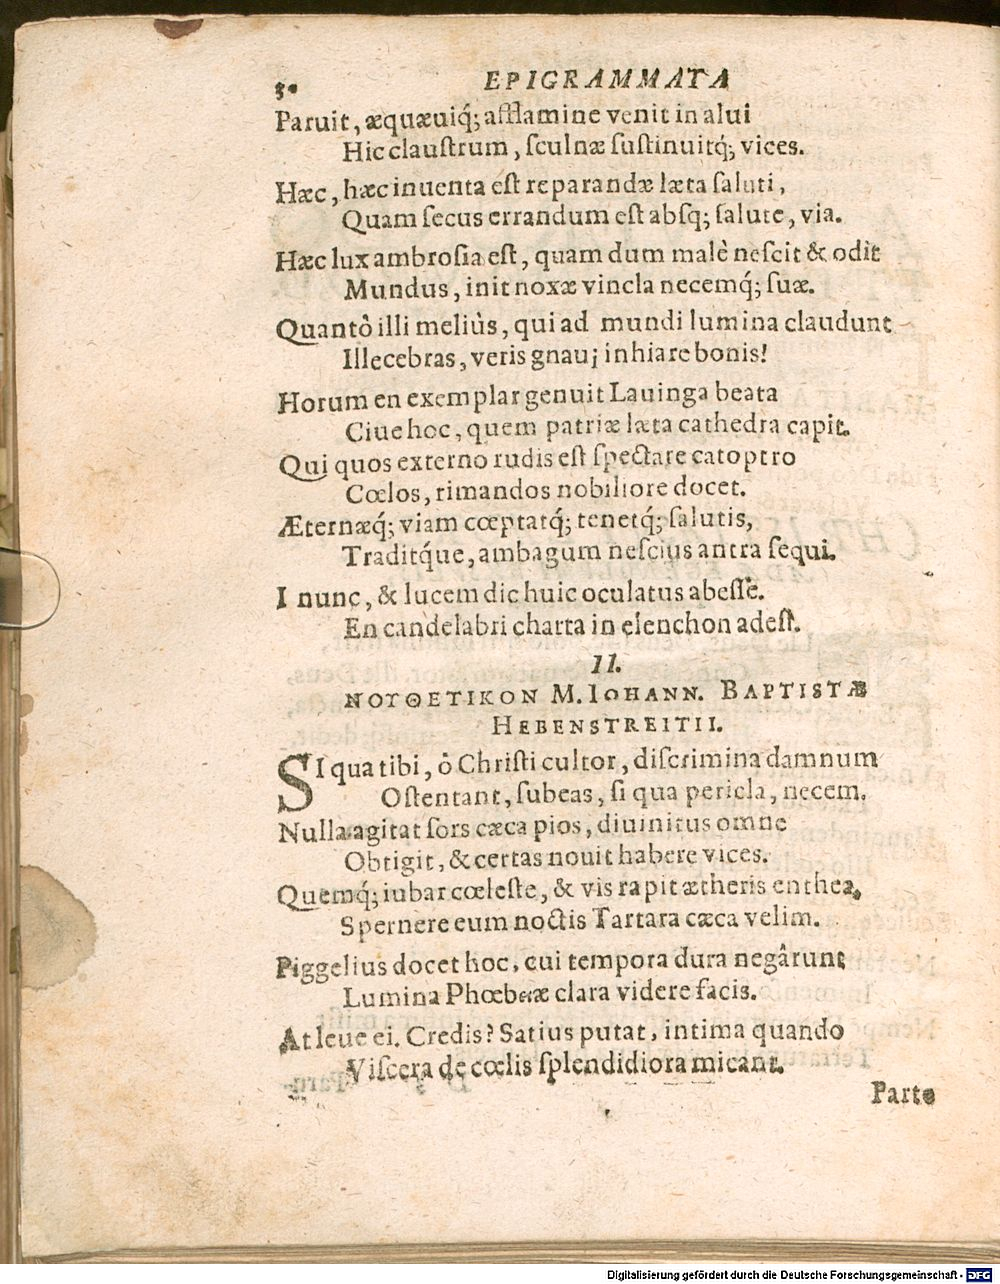 50 EPIGRAMMATA
Paruit, æquæuiq́; afflamine venit in alui
Hic clauſtrum, ſculnæ ſuſtinuitq́; vices.
Hæc, hæc inuenta eſt reparandæ læta ſaluti,
Quam ſecus errandum eſt abſq; ſalute, via.
Hæc lux ambroſia eſt, quam dum malè neſcit & odit
Mundus, init noxæ vincla necemq́; ſuæ.
Quantò illi meliùs, qui ad mundi lumina claudunt
Illecebras, veris gnaui inhiare bonis!
Horum en exemplar genuit Lauinga beata
Ciue hoc, quem patriæ læta cathedra capit.
Qui quos externo rudis eſt ſpectare catoptro
Cœlos, rimandos nobiliore docet.
Æternæq́; viam cœptatq́; tenetq́; ſalutis,
Traditq́ue, ambagum neſcius antra ſequi.
I nunc, & lucem dic huic oculatus abeſſe.
En candelabri charta in elenchon adeſt.
II.
ΝΟΥΘΕΤΙΚΟΝ M. IOHANN. BAPTISTÆ
HEBENSTREITII.
SI qua tibi, ô Chriſti cultor, diſcrimina damnum
Oſtentant, ſubeas, ſi qua pericla, necem.
Nulla agitat ſors cæca pios, diuinitus omne
Obtigit, & certas nouit habere vices.
Quemq́; iubar cœleſte, & vis rapit ætheris enthea,
Spernere eum noctis Tartara cæca velim.
Piggelius docet hoc, cui tempora dura negârunt
Lumina Phœbeæ clara videre facis.
At leue ei. Credis? Satius putat, intima quando
Viſcera de cœlis ſplendidiora micant.
Parte
Digitalisierung gefördert durch die Deutsche Forschungsgemeinschaft - DFG